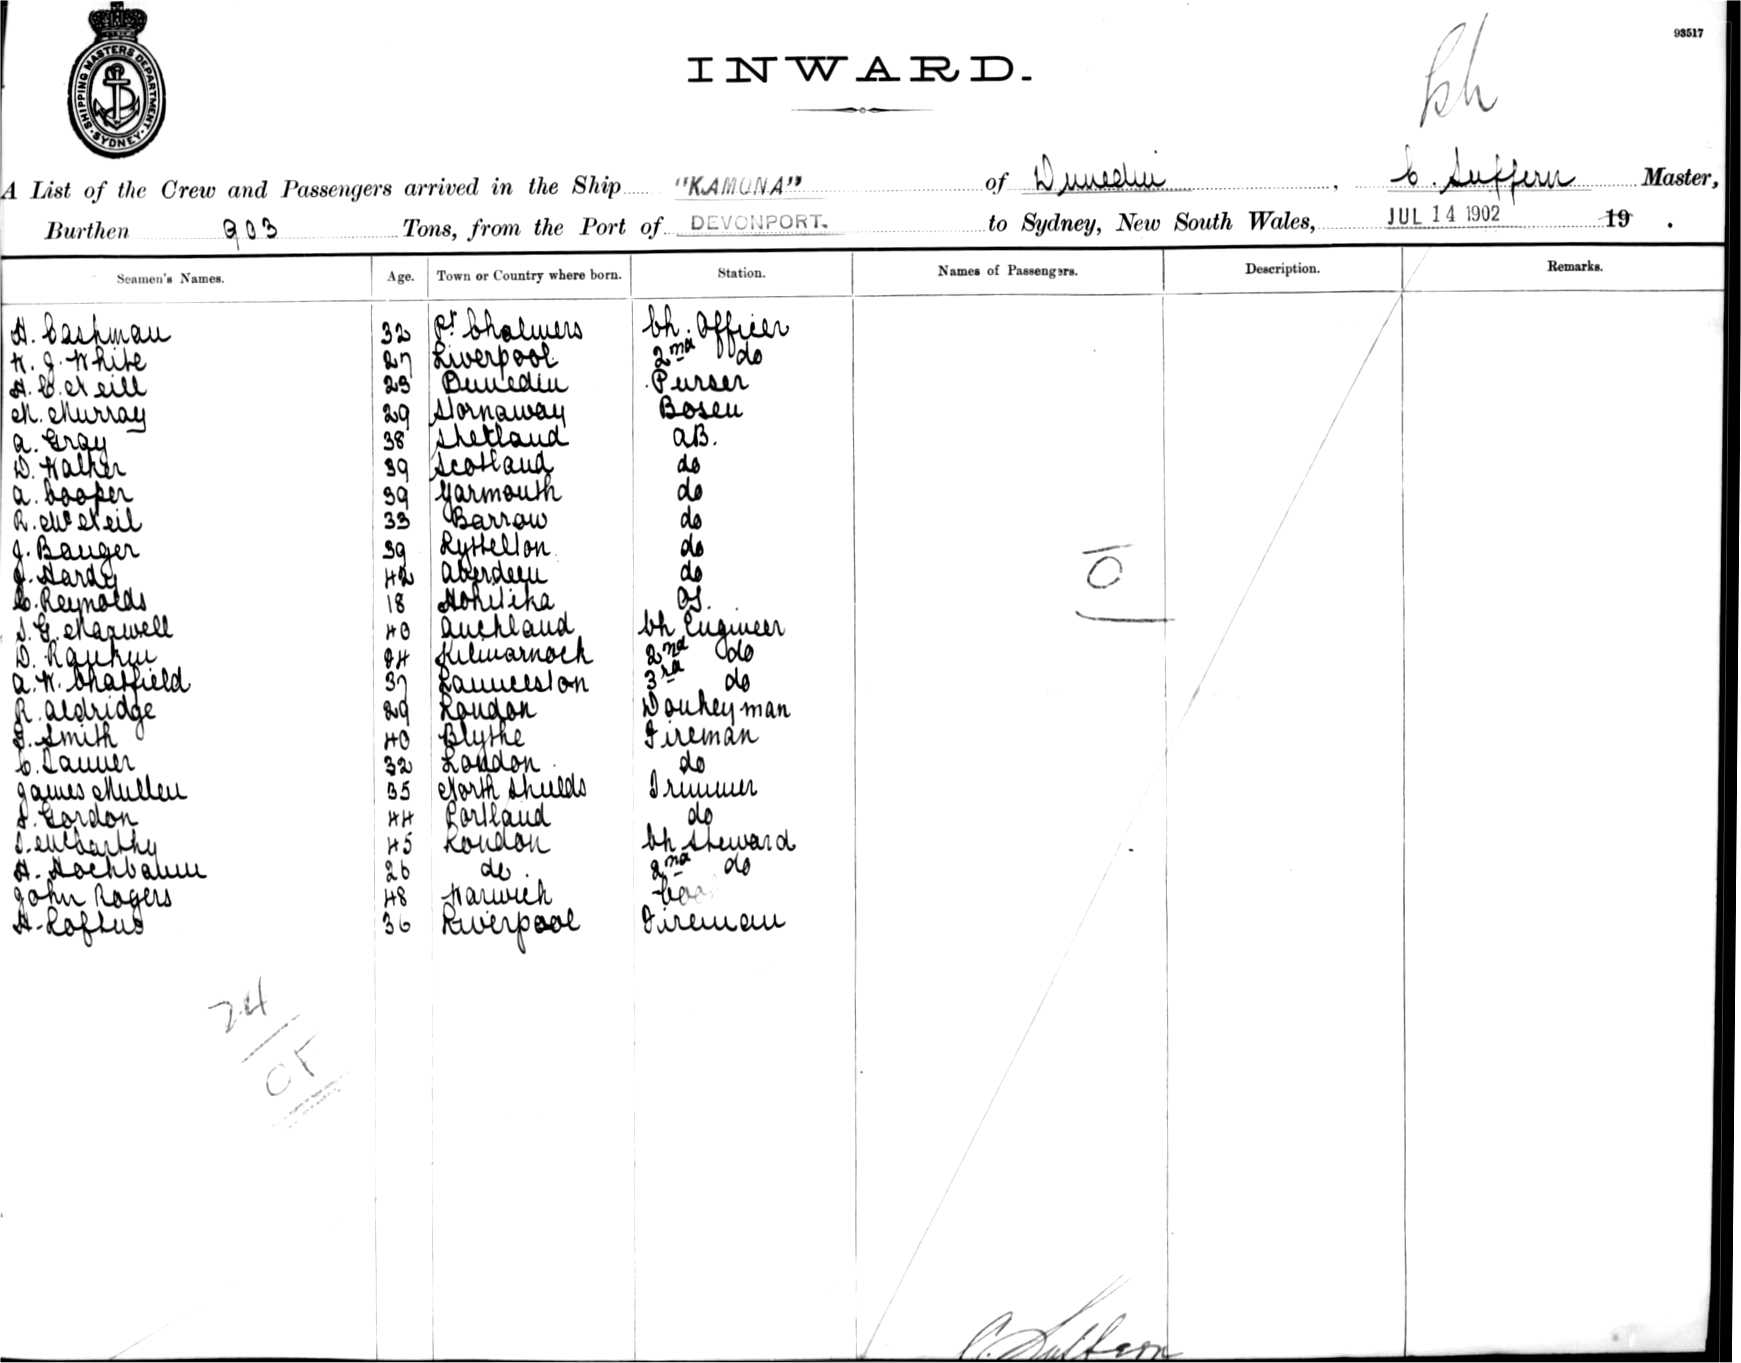 93517
SHIPPING MASTERS DEPARTMENT · SYDNEY ·
INWARD.
A List of the Crew and Passengers arrived in the Ship "KAMONA" of Dunedin, C. Suffern Master,
Burthen 903 Tons, from the Port of DEVONPORT. to Sydney, New South Wales, JUL 14 1902 19 .
Seamen's Names. Age. Town or Country where born. Station. Names of Passengers. Description. Remarks.
H. Cashman 32 Pt Chalmers Ch. Officer
W. J. White 27 Liverpool 2nd do
H. C. Neill 23 Dunedin Purser
M. Murray 29 Stornaway Bosen
A. Gray 38 Shetland AB.
D. Walker 39 Scotland do
A. Cooper 39 Yarmouth do
R. McNeil 33 Barrow do
J. Bauger 39 Lyttelton do
J. Hardy 42 Aberdeen do
C. Reynolds 18 Hokitika OS.
S. G. Maxwell 40 Auckland Ch Engineer
D. Rankin 24 Kilmarnock 2nd do
A. W. Chatfield 37 Launceston 3rd do
R. Aldridge 29 London Donkeyman
J. Smith 40 Blythe Fireman
C. Tanner 32 London do
James Mullen 35 North Shields Trimmer
J. Gordon 44 Portland do
J. McCarthy 45 London Ch Steward
H. Hochbaum 26 do. 2nd do
John Rogers 48 Harwich
H. Loftus 36 Liverpool Fireman
O
24
C. Suffern